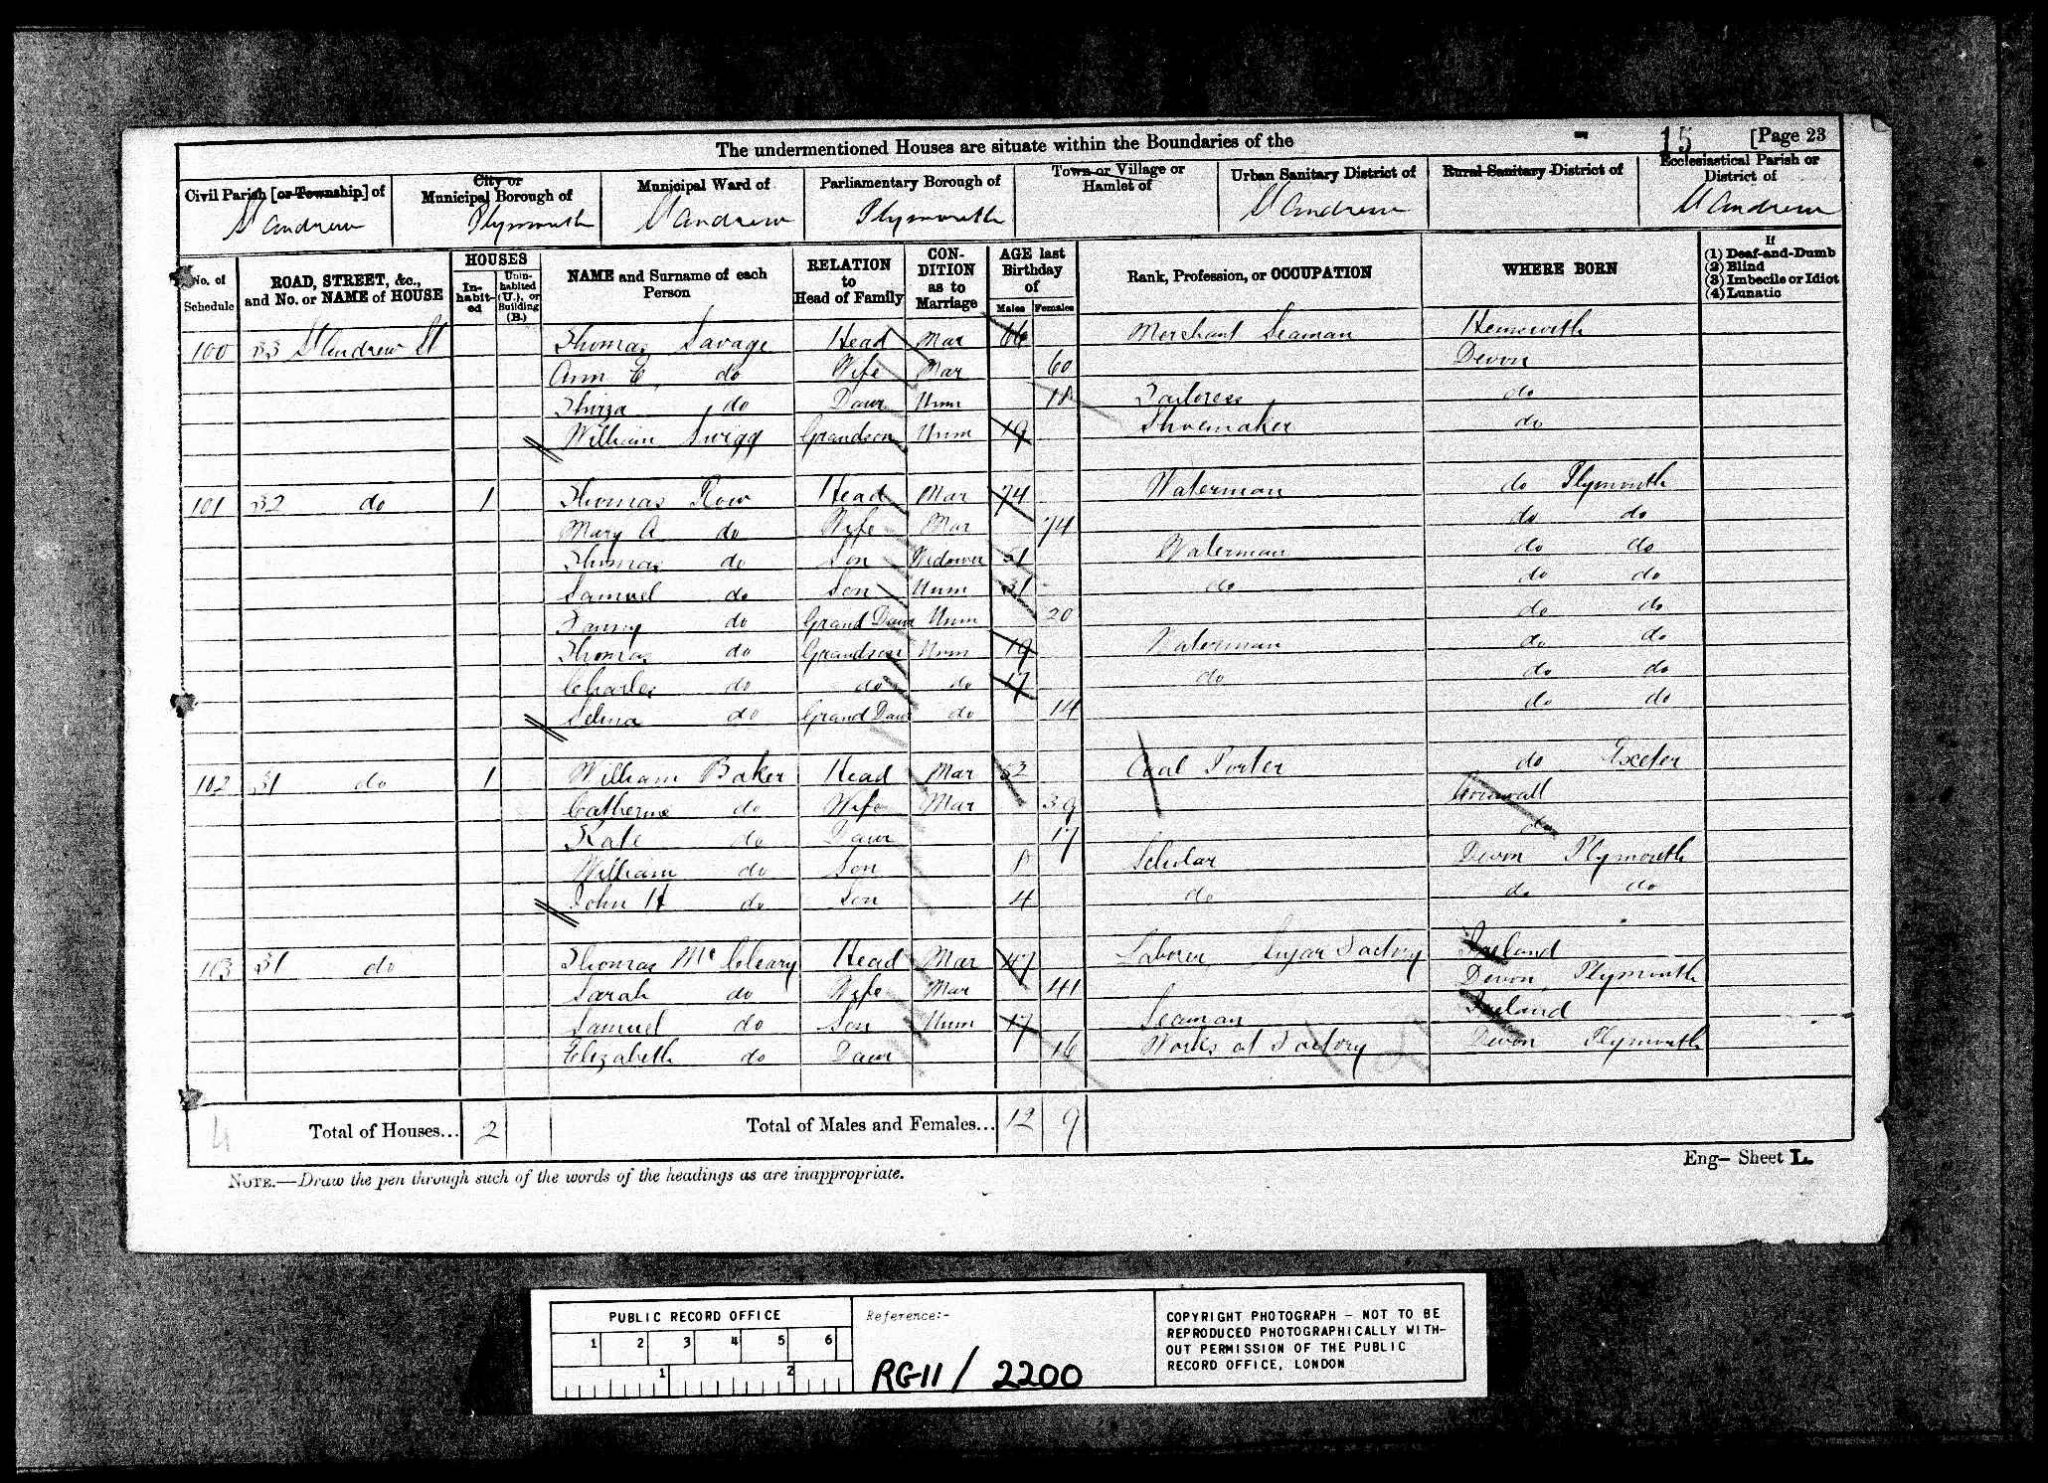 The undermentioned Houses are situate within the Boundaries of the
15 [Page 23
Civil Parish [or Township] of
City or Municipal Borough of
Municipal Ward of
Parliamentary Borough of
Town or Village or Hamlet of
Urban Sanitary District of
Rural Sanitary District of
Ecclesiastical Parish or District of
St Andrew Plymouth St Andrew Plymouth St Andrew St Andrew
No. of Schedule
ROAD, STREET, &c., and No. or NAME of HOUSE
HOUSES
Inhabited
Uninhabited (U.), or Building (B.)
NAME and Surname of each Person
RELATION to Head of Family
CONDITION as to Marriage
AGE last Birthday of
Males Females
Rank, Profession, or OCCUPATION
WHERE BORN
If
(1) Deaf-and-Dumb
(2) Blind
(3) Imbecile or Idiot
(4) Lunatic
100 33 St Andrew St Thomas Savage Head Mar 66 Merchant Seaman
Ann E do Wife Mar 60 Devon
Thirza do Daur Unm 18 Tailoress do
William Grandson Unm 19 Shoemaker do
101 32 do 1 Thomas Row Head Mar 74 Waterman do Plymouth
Mary A do Wife Mar 74 do do
Thomas do Son Widower Waterman do do
Samuel do Son Unm 31 do do do
Fanny do Grand Daur Unm 20 do do
Thomas do Grandson Unm 19 Waterman do do
Charles do do do 17 do do do
Selina do Grand Daur do 14 do do
102 31 do 1 William Baker Head Mar 52 Coal Porter do Exeter
Catherine do Wife Mar 39 Cornwall
Kate do Daur 17 do
William do Son 8 Scholar Devon Plymouth
John H do Son 4 do do do
103 31 do Thomas McCleary Head Mar 47 Laborer Sugar Factory Ireland
Sarah do Wife Mar 41 Devon Plymouth
Samuel do Son Unm 17 Seaman Ireland
Elizabeth do Daur 16 Works at Factory Devon Plymouth
4 Total of Houses... 2 Total of Males and Females... 12 9
Eng- Sheet L.
NOTE.—Draw the pen through such of the words of the headings as are inappropriate.
PUBLIC RECORD OFFICE
1 2 3 4 5 6
1 2
Reference:-
RG11/2200
COPYRIGHT PHOTOGRAPH - NOT TO BE
REPRODUCED PHOTOGRAPHICALLY WITH-
OUT PERMISSION OF THE PUBLIC
RECORD OFFICE, LONDON